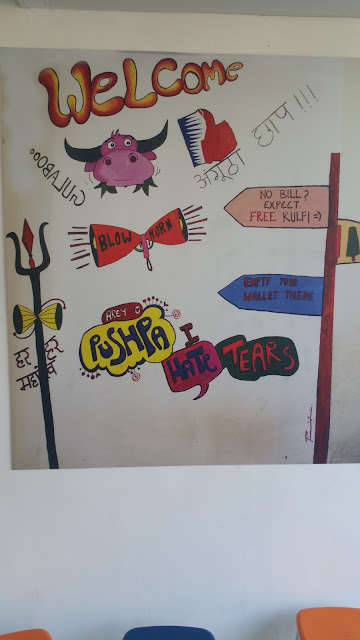 WELCOME
GULABOOO
अंगूठा छाप !!!
NO BILL?
EXPECT
FREE KULFI =)
BLOW HORN
EMPTY YOUR
WALLET THERE
हर
महादेव
AREY O
PUSHPA
I
HATE
TEARS